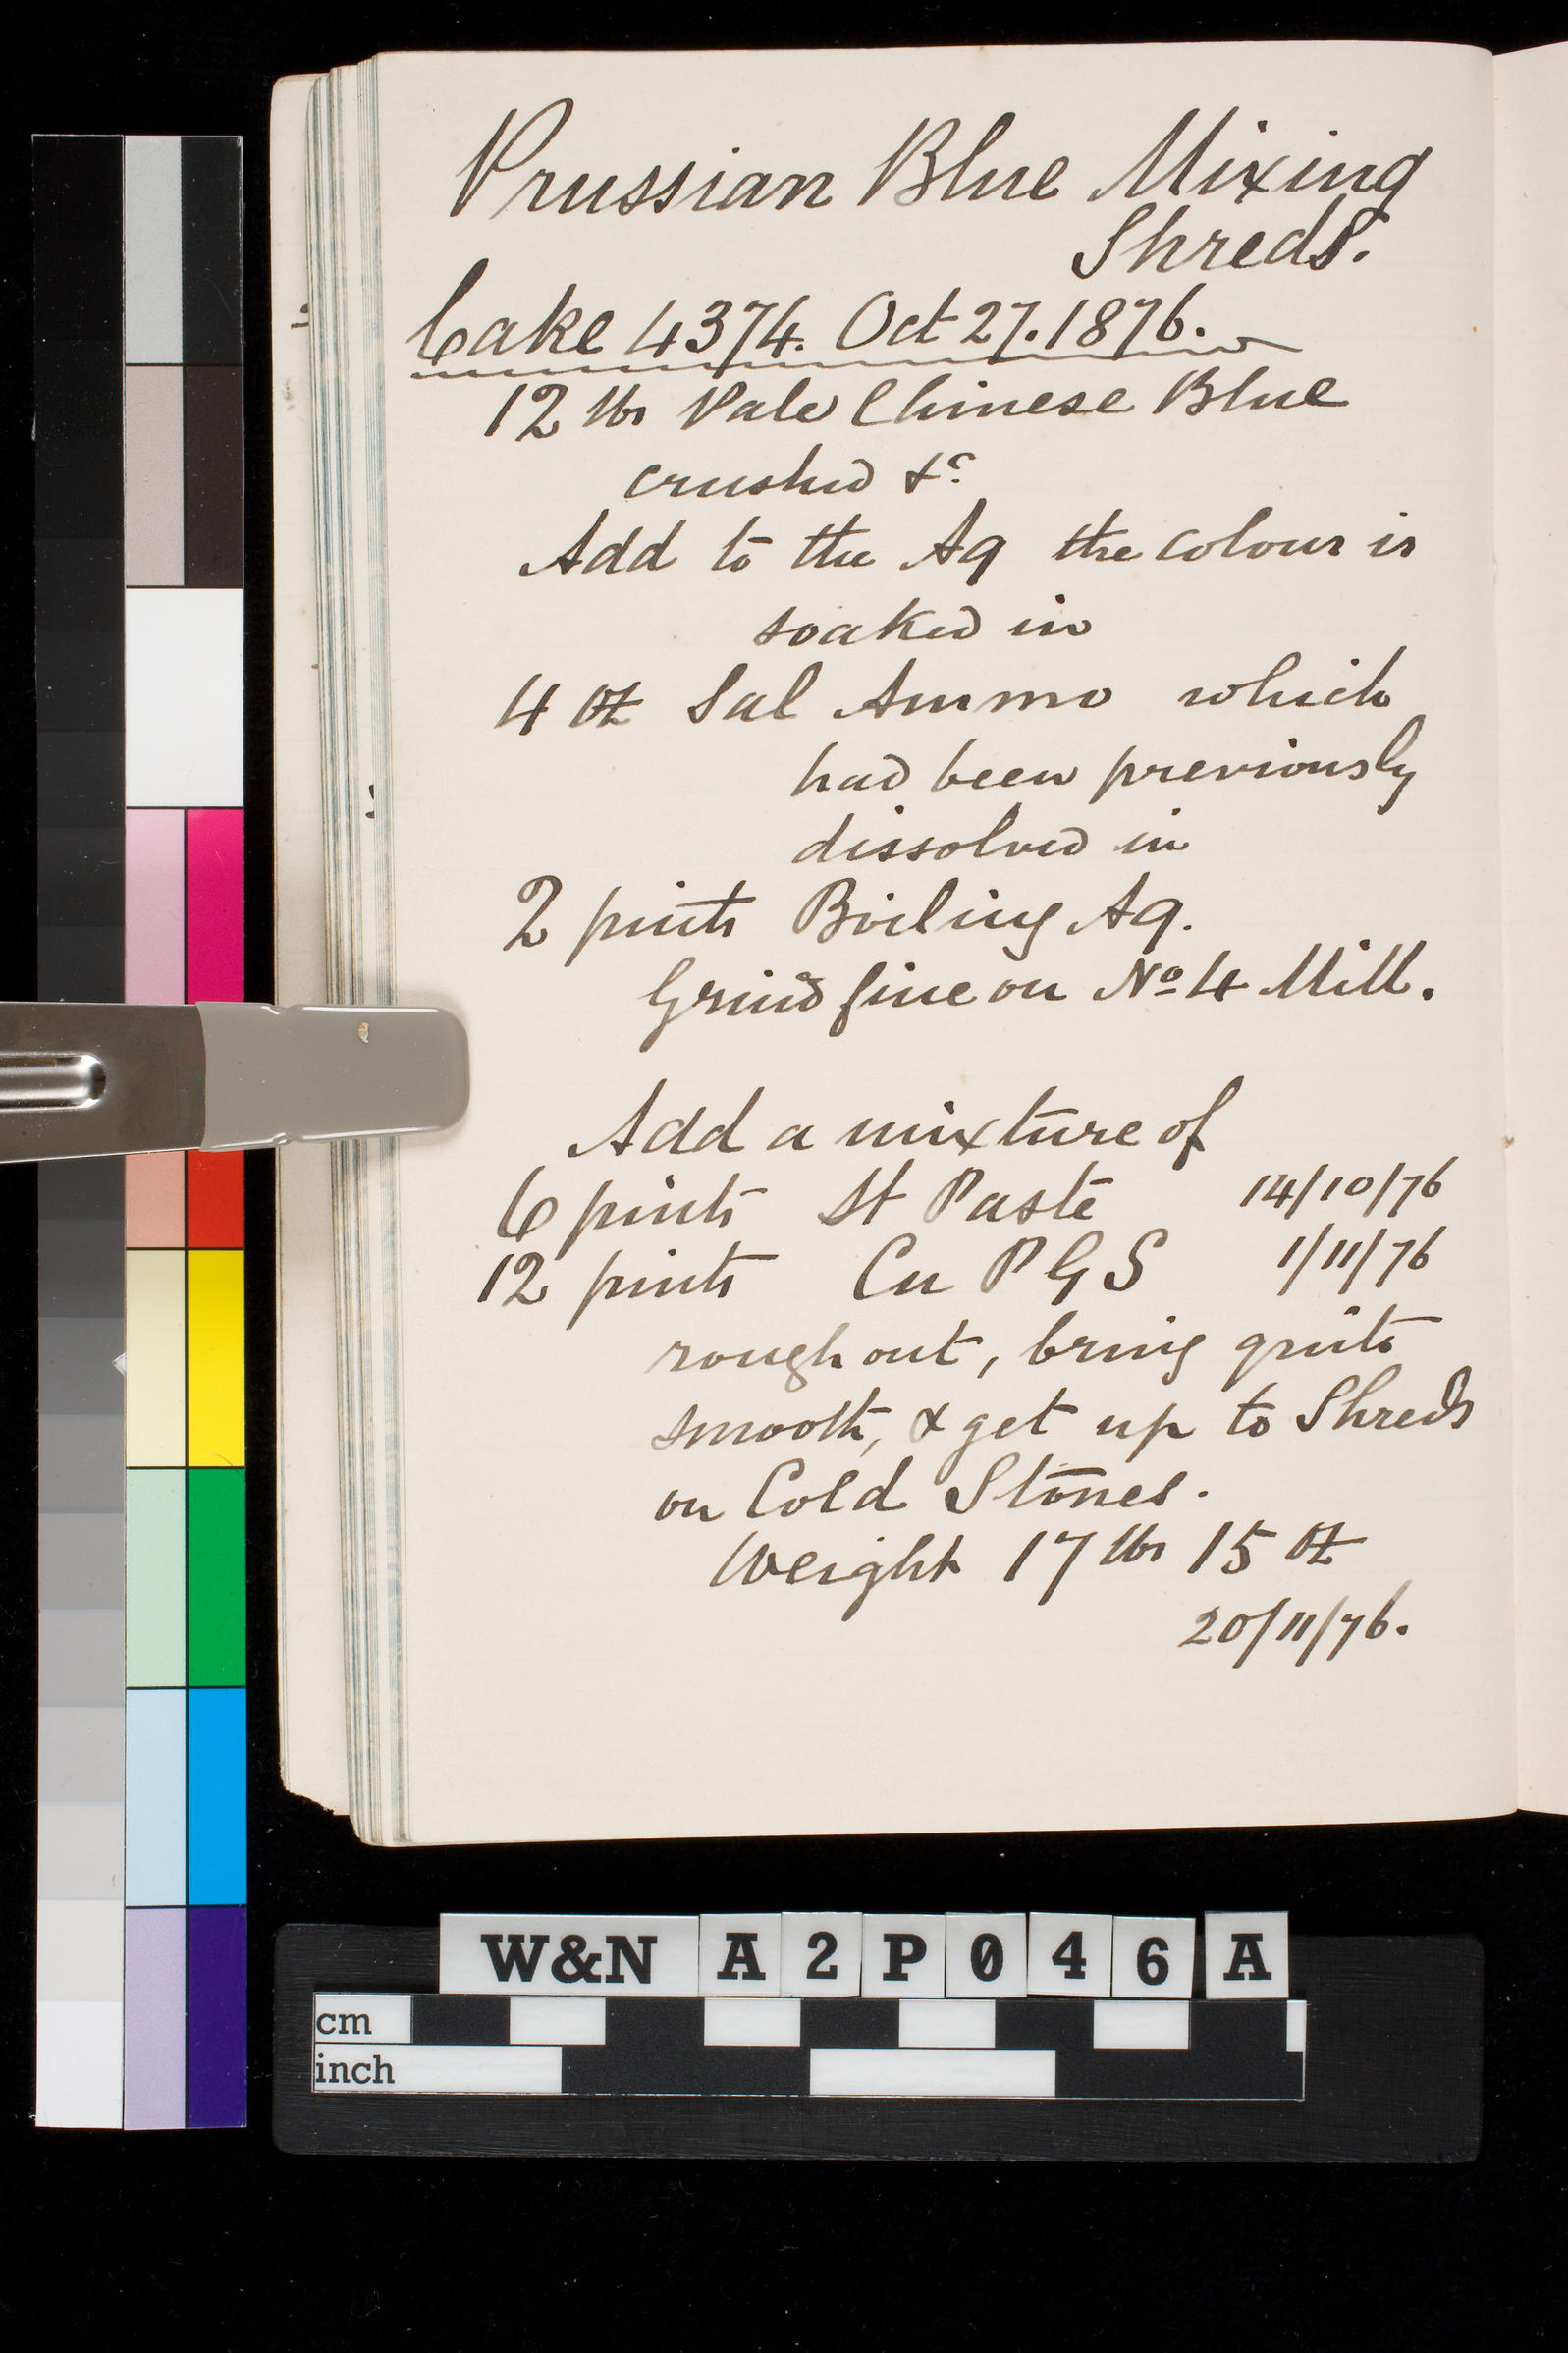 Prussian Blue Mixing
Shreds.
Cake 4374. Oct 27. 1876.
12 lbs Pale Chinese Blue
crushed &c
Add to the Aq the colour is
soaked in
4 oz Sal Ammo which
had been previously
dissolved in
2 pints Boiling Aq.
Grind fine on No 4 Mill.
Add a mixture of
6 pints St Paste 14/10/76
12 pints Cu P G S 1/11/76
rough out, bring quite
smooth, & get up to Shreds
on Cold Stones.
Weight 17 lbs 15 oz
20/11/76.
W&N A2P046A
cm
inch